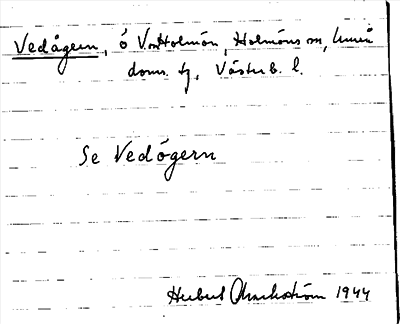 Vedågern, ö V. om Holmön, Holmöns sn, Umeå
doms. tg, Västerb. l.
Se Vedögern
Herbert Markström 1944